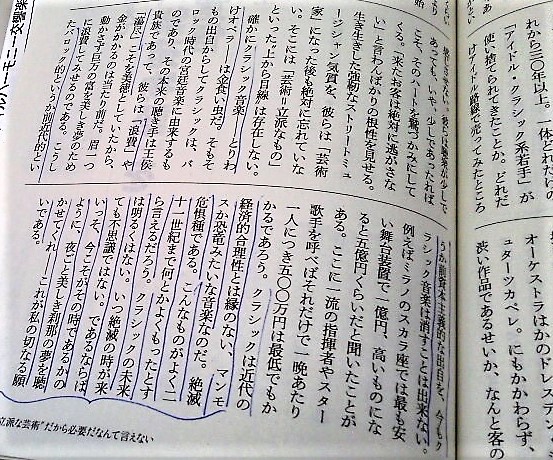 れから三〇年以上、一体どれだけの
「アイドル・クラシック系若手」が
使い捨てられてきたことか。どれだ
けアイドル路線で売ってみたところ
オーケストラはかのドレスデン・
ュターツカペレ。にもかかわらず、
渋い作品であるせいか、なんと客の
彼らは聴衆が少しで
あっても、いや、少しであったれば
こそ、そのハートを鷲づかみにして
くる。「来たお客は絶対に逃がさな
い」と言わんばかりの根性を見せる。
生き生きした強靭なストリートミュ
ージシャン気質を、彼らは「芸術
家」になった後も絶対に忘れていな
い。そこには「芸術＝立派なもの」
といった“上から目線”は存在しない。
確かにクラシック音楽――とりわ
けオペラ――は金食い虫だ。そもそ
もの出自からしてクラシックは、バ
ロック時代の宮廷音楽に由来するも
のであり、その本来の聴き手は王侯
貴族であって、彼らは「浪費」や
「蕩尽」こそを美徳としていたから、
金がかかるのは当たり前だ。眉一つ
動かさず巨万の富を美しき夢のため
に浪費してみせるのである。こうし
たバロック的というか前近代的とい
うか前資本主義的な出自を、今もク
ラシック音楽は消すことは出来ない。
例えばミラノのスカラ座では最も安
い舞台装置で一億円、高いものにな
ると五億円くらいだと聞いたことが
ある。ここに一流の指揮者やスター
歌手を呼べばそれだけで一晩あたり
一人につき五〇〇万円は最低でもか
かるであろう。クラシックは近代の
経済的合理性とは縁のない、マンモ
スか恐竜みたいな音楽なのだ。絶滅
危惧種である。こんなものがよく二
十一世紀まで何とかよくもったとす
ら言えるだろう。クラシックの未来
は明るくはない。いつ絶滅の時が来
ても不思議ではない。であるならば
いっそ、今こそがその時であるかの
ように、夜ごと美しき刹那の夢を聴
かせてくれ――これが私の切なる願
いである。
立派な芸術”だから必要だなんて言えない